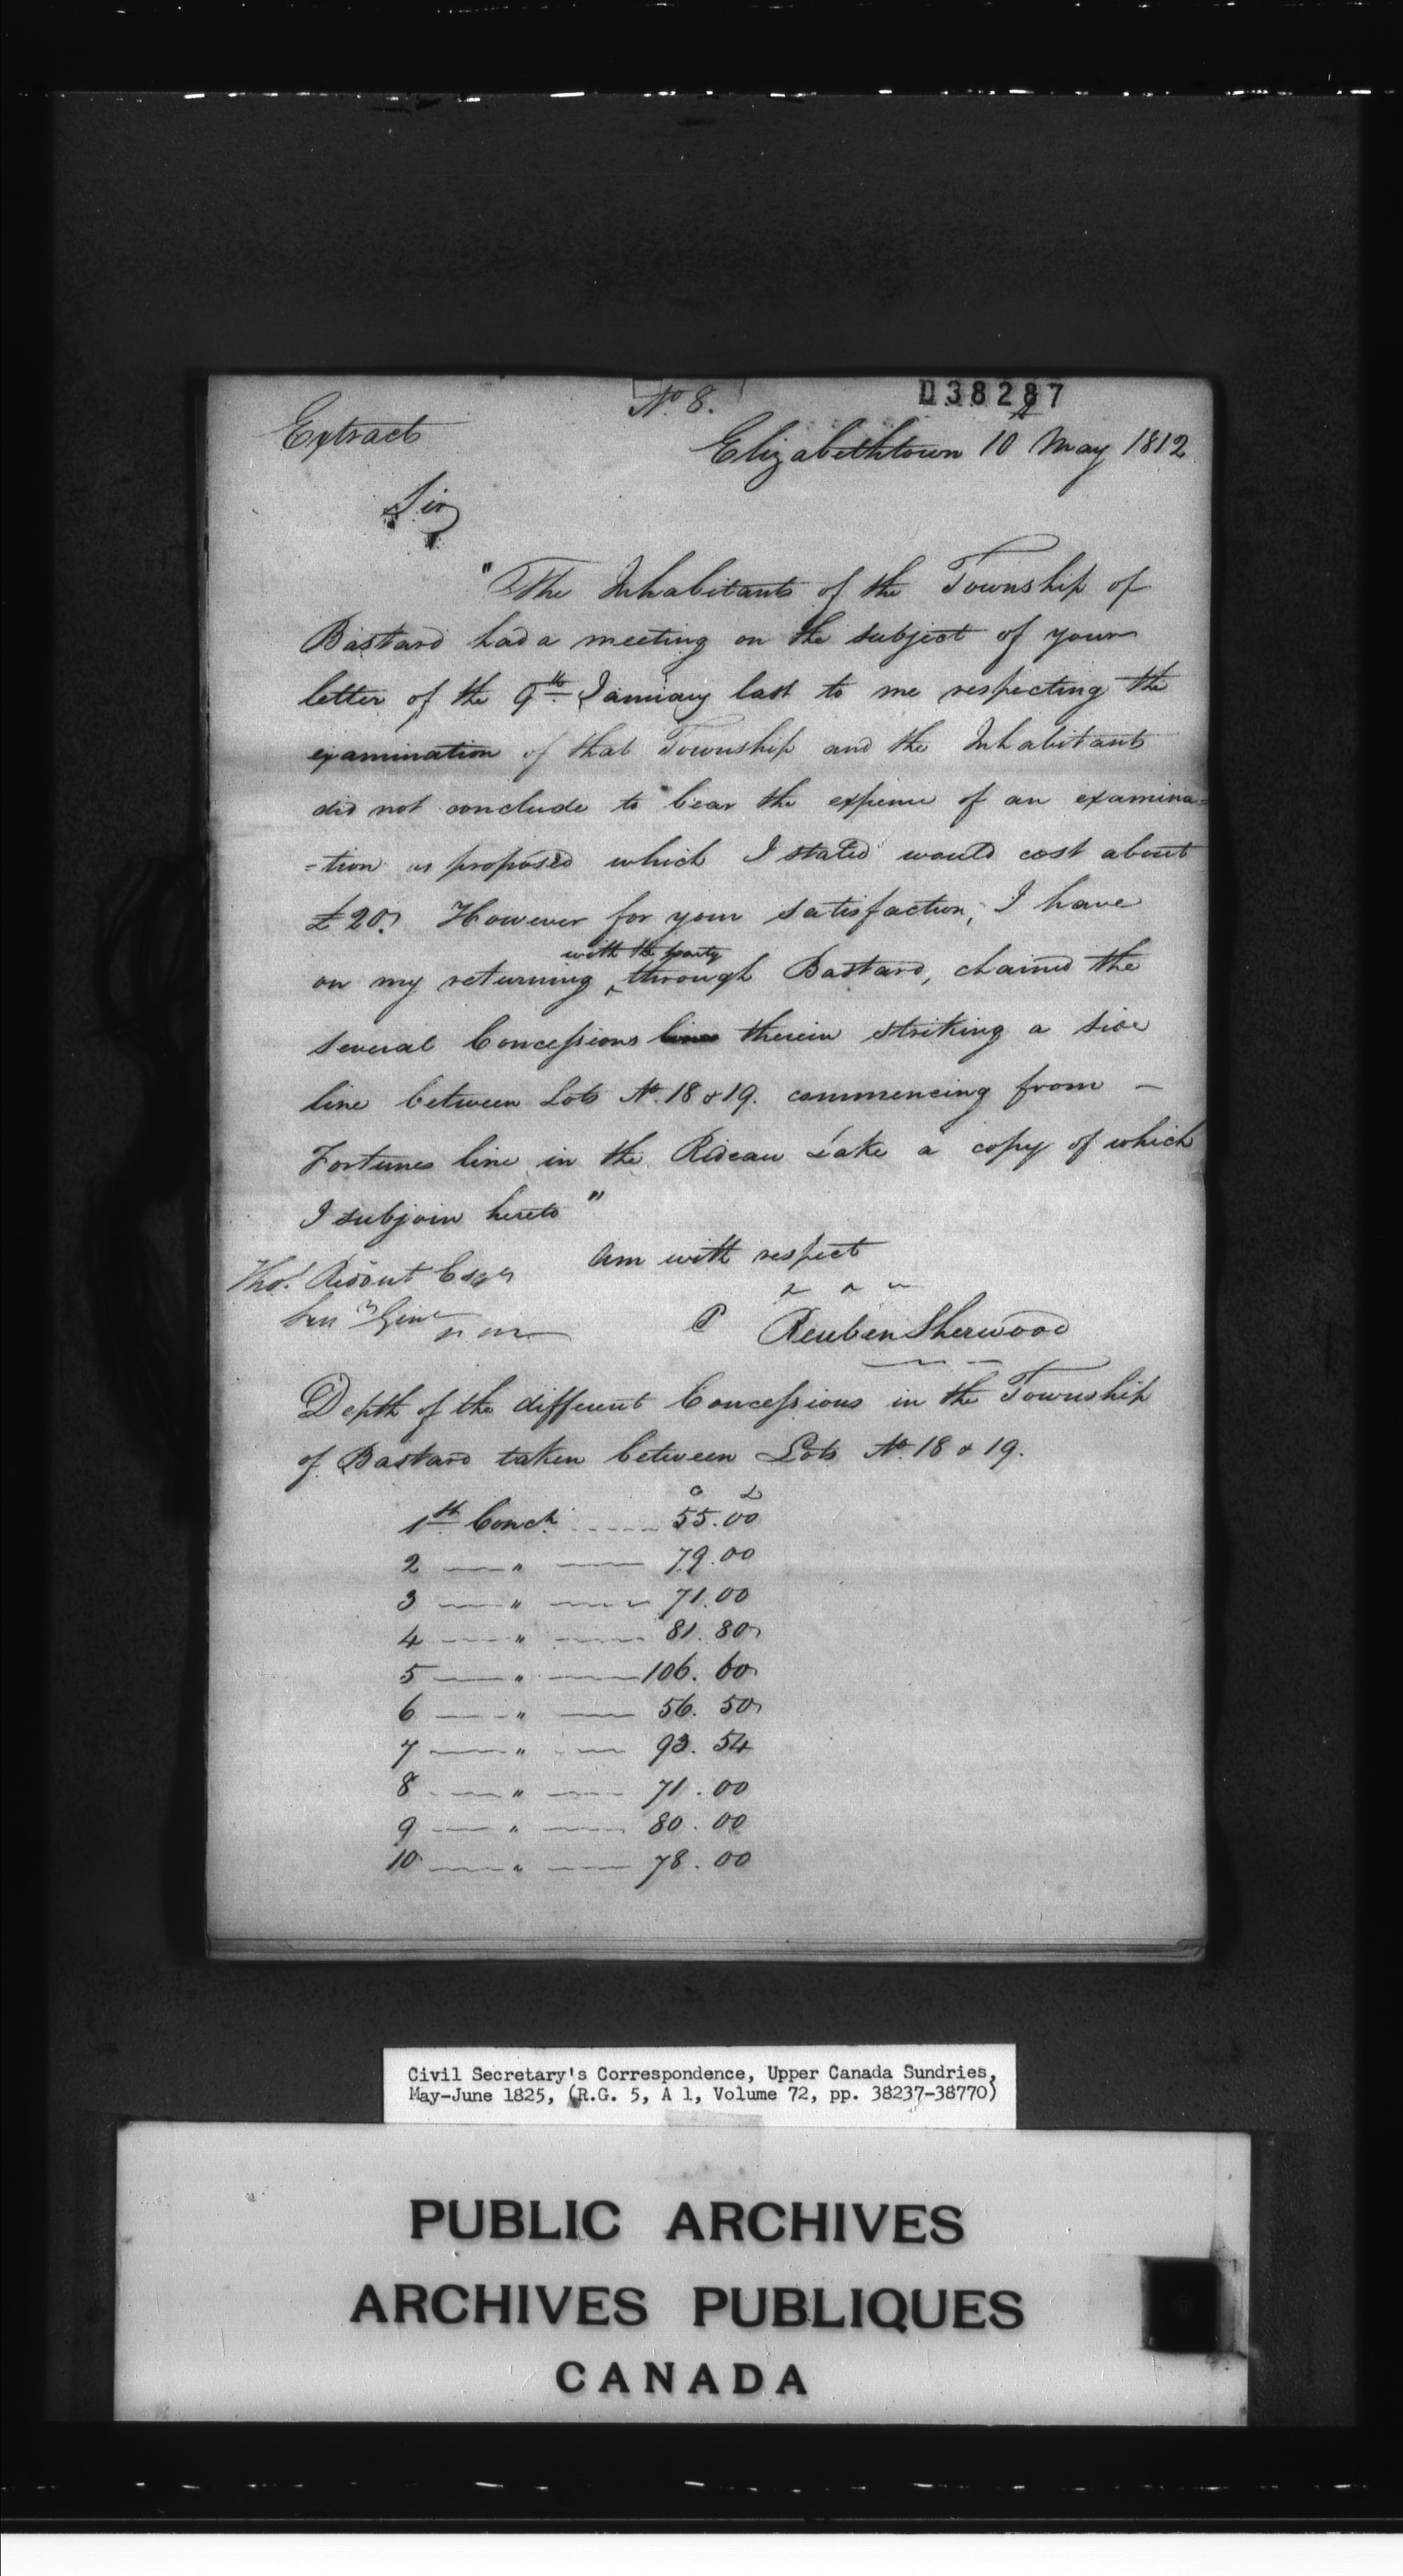 No. 8.
038287
Extract
Elizabethtown 10th May 1812
Sir,
"The Inhabitants of the Township of
Bastard had a meeting on the subject of your
letter of the 9th January last to me respecting the
examination of that Township and the Inhabitants
did not conclude to bear the expense of an examina=
=tion as proposed which I stated would cost about
£20. However for your satisfaction, I have
on my returning ^with the party through Bastard, chained the
several Concessions line therein striking a side
line between Lots No. 18 & 19. commencing from –
Fortunes line in the Rideau Lake a copy of which
I subjoin hereto"
Am with respect
Thos. Ridout Esqr
Reuben Sherwood
Depth of the different Concessions in the Township
of Bastard taken between Lots No. 18 & 19.
C L
1st Concn. 55.00
2 — " — 79.00
3 — " — 71.00
4 — " — 81.80
5 — " — 106.60
6 — " — 56.50
7 — " — 93.54
8 — " — 71.00
9 — " — 80.00
10 — " — 78.00
Civil Secretary's Correspondence, Upper Canada Sundries,
May-June 1825, (R.G. 5, A 1, Volume 72, pp. 38237-38770)
PUBLIC ARCHIVES
ARCHIVES PUBLIQUES
CANADA